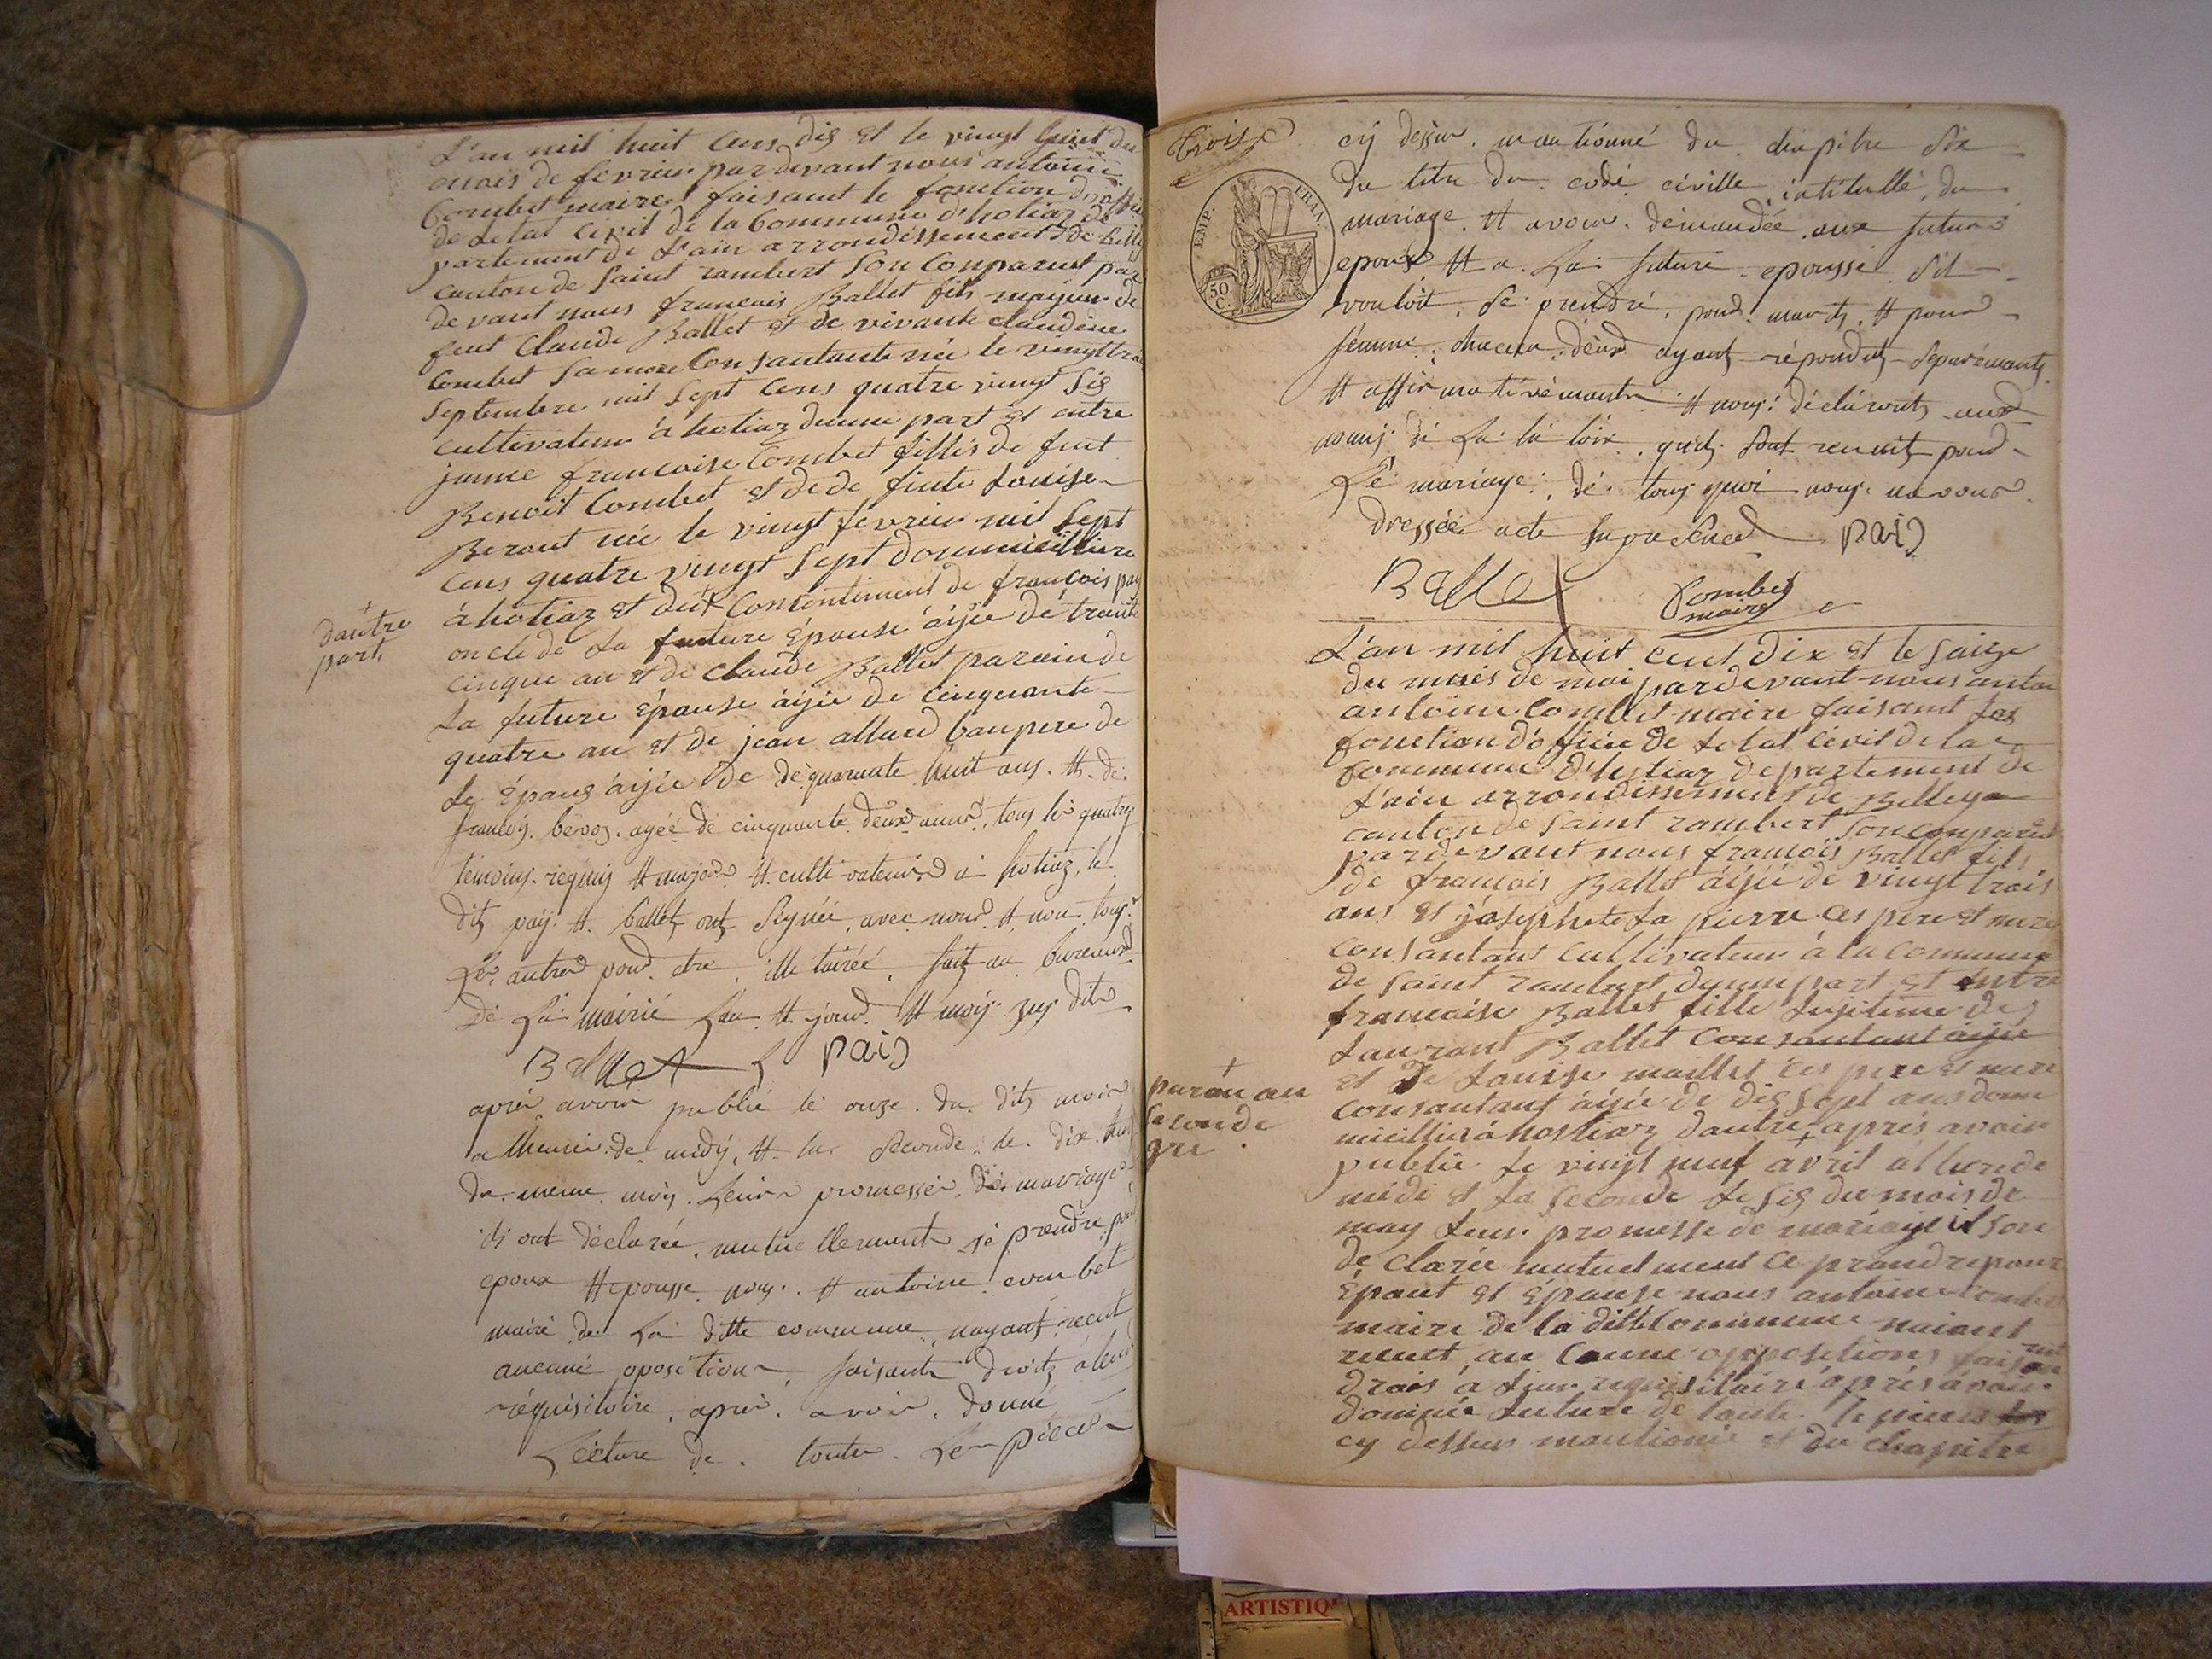 L'an mil huit cens dis et le vingt huit du
mois de fevrier par devant nous antoine
Combet maire faisant le fonction
de Letat civil de la Commune d'hotiaz de
partement de L'ain arrondissement de Belley
canton de Saint rambert Son Conparut par
devant nous francois Ballet fils majeur de
feut Claude Ballet et de vivante claudine
Combet Sa mere Consantante née le vingt trois
Septembre mil Sept Cens quatre vingt Sis
cultivateur à hotiaz dunne part et entre
janne francoise Combet filliés de feut
Benoit Combet et de de feute Louise
Beraut née le vingt fevrier mil Sept
Cens quatre vingt Sept dommicilliere
dautre
part
à hotiaz et du Consentiment de francois pay
oncle de La future Épouse âijée dé trante
cinque an et de Claude Ballet parain de
La future épouse âijée de Cinquante
quatre an et de jean allard baupere de
Le Épouz âijée de dé quarante huit ans. tt. de
francois. bévoz. agéé de cinquante deux anné. tous les quatry
témoins. requis tt majeur tt. cultivateurs à hotiaz. le
dits pay. tt. ballet, ont Signéé, avec nous. tt non. tous
Les autres pour être illetairéé. fait au bureaux
De La mairié Lan. tt jour. tt mois sus dits
Ballet Pais
aprés avoir publié le onze. du dits mois
a lheure. de midy, tt. la Seconde. le. dix. huit
du. meme. mois. leurs promesses. dé. mariage
ils ont déclarée mutuellement sé prendre pour
epoux tt epousse nous. tt antoine combet
mairé de. La ditte commune nayant recut
aucuné oposition faisante droits a leur
réquisitoire. aprés. avoir. donné
Lécture de. toutes. Les pièces
Troise
cy dessu. mantionné du. chapitre Six
Du titre du. codé civille intitullé, du
EMP. FRAN.
50 C.
mariage. tt avoir. demandée. aux futurs
epoux tt a. La futuré epousse. Sil
vouloit. Se prendré. pour. marit, tt pour
féamme. chacun. deux ayant répondut Séparémants
tt affirmativémants tt nous. déclaronts aux
noms dé La la loix. quils Sont reunits pour
Lé mariage. dé. tous quoi nous. avons
Dressée acte Pais
Ballet Combet
maire
L'an mil huit cent dix et le saize
du mois de mai par devant nous antoi
antoine Combet maire faisant Les
fonction d'officie de Letat Civil de la
Commune d'hotiaz departement de
L'ain arrondissement de Belley
canton de Saint rambert Son Comparut
par devant nous francois Ballet fils
de francois Ballet âijée de vingt trois
ans et joséphete La pierre Ces pere et mere
Consantant Cultivateur à la Commune
de Saint rambert dunne part et entre
francoise Ballet fille Lejitime de
Laurant Ballet Consantant âijée
et De Louise maillet Ces pere et mere
paran au
Seconde
gre.
Consantant âijée de dis Sept ans dom
micilliés à hostiaz dautre + aprés avoir
publié Le vingt neuf avril a lheure de
midi et La Seconde Le Sis du mois de
may Leur promesse de mariage il Son
de Clarée mutuelment Ce prandre pour
Épout et Épouse nous antoine Combet
maire de la ditte Commune naiant
recut au Cunne oppositions
drois a Leur requisitoire aprés avoir
donnée Lecture de toute le pieces
cy dessus mantionné et du chapitre
ARTISTIQ